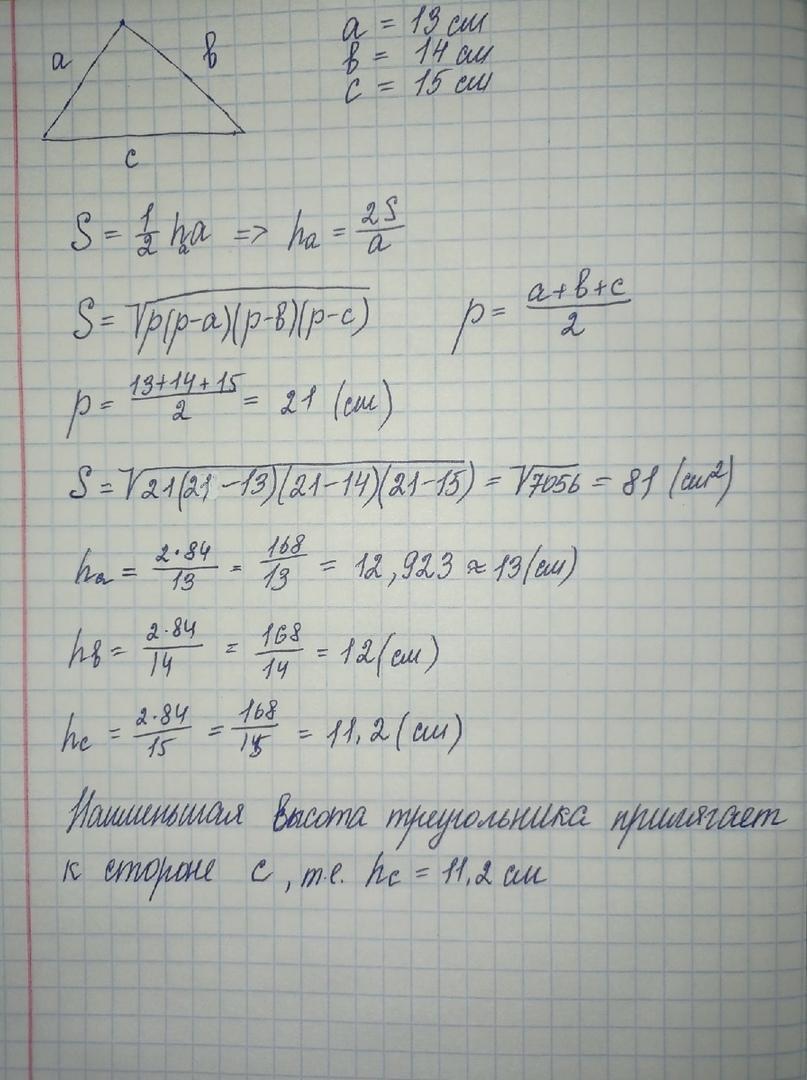 a
в
c
a = 13 см
в = 14 см
c = 15 см
S = 1/2 hₐa => hₐ = 2S/a
S = √p(p-a)(p-в)(p-c) p = a+в+c/2
p = 13+14+15/2 = 21 (см)
S = √21(21-13)(21-14)(21-15) = √7056 = 81 (см²)
hₐ = 2·84/13 = 168/13 = 12,923 ≈ 13(см)
hв = 2·84/14 = 168/14 = 12(см)
hс = 2·84/15 = 168/15 = 11.2 (см)
Наименьшая высота треугольника прилягает
к стороне c, т.е. hс = 11.2 см